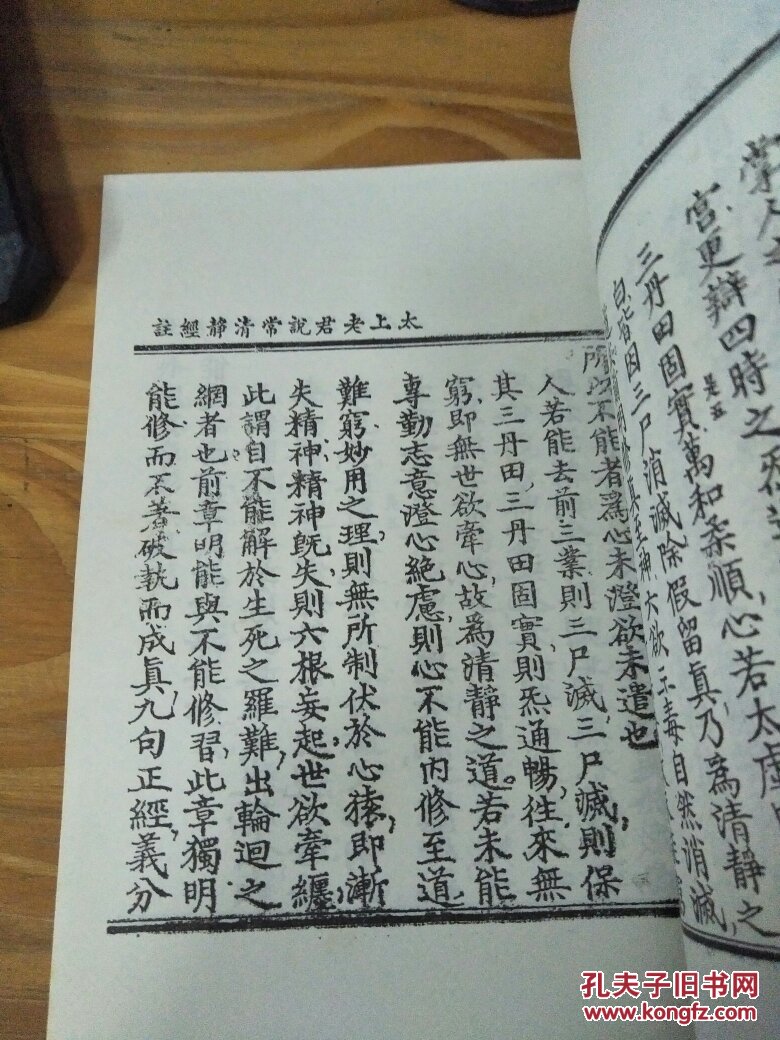 掌人
宮更辯四時之炁
是五
三丹田固實萬和柔順心若太虛
三尸消滅除假留真乃為清靜之
六欲三毒自然消滅
太上老君說常清靜經註
所以不能者為心未澄欲未遣也
人若能去前三業則三尸滅三尸滅則保
其三丹田三丹田固實則炁通暢往來無
窮即無世欲牽心故為清靜之道若未能
專勤志意澄心絕慮則心不能內修至道
難窮妙用之理則無所制伏於心猿即漸
失精神精神既失則六根妄起世欲牽纏
此謂自不能解於生死之羅難出輪迴之
網者也前章明能與不能修習此章獨明
能修而不著破執而成真九句正經義分
孔夫子旧书网
www.kongfz.com